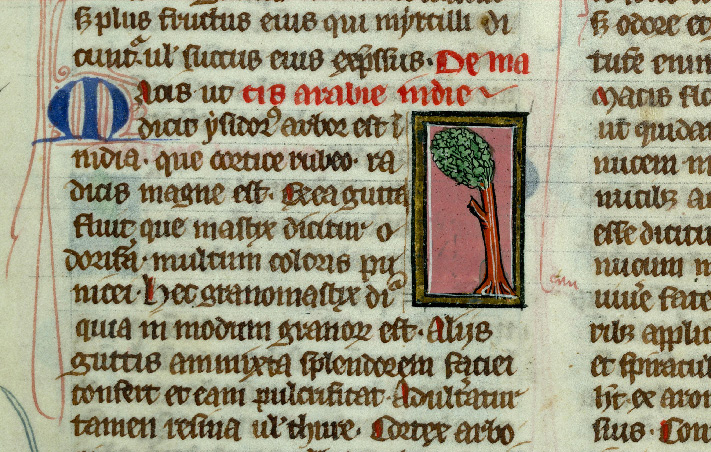 s̄ plus fructus eius qui mirtilli di
cunt̄ ul' succus eius exp̄ssus. De ma
Macis ut cis arabie indie
dicit ysidor' arbor est ī
nidia. que cortice rubeo. ra
dicis magne est. Ex ea gutta
fluit que mastix dicitur o
dorifa. multum coloris pu
nicei. Hec granomastix di
quia in modum granoꝝ est. Alijs
guttis ammixta splendorem faciei
confert et eam pulcrificat. Adult̄atur
tamen resina ul' thure. Cortex arbo
s̄ odore et
tute enim
Macis
ut quidam
nucem
nucib
esse dicitur
nucum
uiue
rib applic
et spiracul
ht ex aro
sius. Con